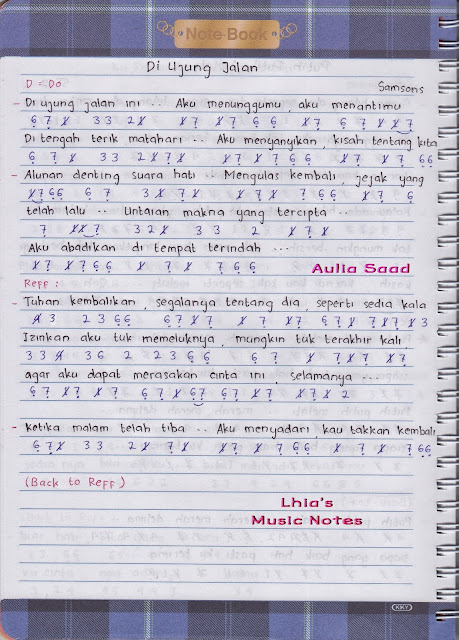 Note-Book
Di Ujung Jalan
D = Do
Samsons
- Di ujung jalan ini .. Aku menunggumu, aku menantimu
6̣ 7̣ 1̸ 3 3 2 1̸ 7̣ 1̸ 7̣ 6̣ 6̣ 1̸ 7̣ 6̣ 7̣ 1̸ 1̸ 7̣
Di tengah terik matahari .. Aku menyanyikan, kisah tentang kita
6̣ 7̣ 1̸ 3 3 2 1̸ 7̣ 1̸ 1̸ 7̣ 1̸ 7̣ 6̣ 6̣ 1̸ 7̣ 1̸ 7̣ 6̣ 6̣
- Alunan denting suara hati .. Mengulas kembali, jejak yang
1̸ 7̣ 6̣ 6̣ 6̣ 7̣ 3 1̸ 7̣ 1̸ 7̣ 1̸ 7̣ 1̸ 7̣ 6̣ 6̣ 1̸ 7̣ 6̣
telah lalu .. Untaian makna yang tercipta ..
7̣ 1̸ 1̸ 7̣ 3 2 1̸ 3 3 2 1̸ 7̣ 1̸
Aku abadikan di tempat terindah ...
1̸ 7̣ 1̸ 7̣ 6̣ 6̣ 1̸ 7̣ 1̸ 7̣ 6̣ 6̣
Aulia Saad
Reff :
- Tuhan kembalikan, segalanya tentang dia, seperti sedia kala
4̸ 3 2 3 6̣ 6̣ 6̣ 7̣ 1̸ 7̣ 1̸ 7̣ 1̸ 7̣ 6̣ 7̣ 1̸ 7̣ 1̸ 3
Izinkan aku tuk memeluknya, mungkin tuk terakhir kali,
3 3 4̸ 3 6 2 2 3 6̣ 6̣ 6̣ 7̣ 1̸ 7̣ 1̸ 7̣ 1̸ 7̣
agar aku dapat merasakan cinta ini, selamanya ...
6̣ 7̣ 1̸ 7̣ 1̸ 7̣ 6̣ 7̣ 1̸ 6̣ 7̣ 6̣ 7̣ 1̸ 7̣ 1̸ 7̣ 1̸ 2
- Ketika malam telah tiba .. Aku menyadari kau takkan kembali
6̣ 7̣ 1̸ 3 3 2 1̸ 7̣ 1̸ 1̸ 7̣ 1̸ 7̣ 6̣ 6̣ 1̸ 7̣ 1̸ 7̣ 6̣ 6̣
(Back to Reff)
Lhia's
Music Notes
KKY